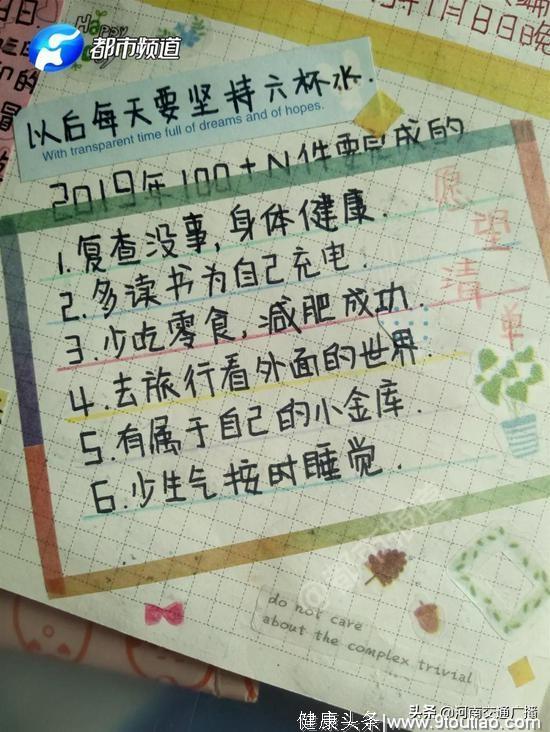 都市频道
Happy
以后每天要坚持六杯水.
With transparent time full of dreams and of hopes.
2019年100+N件要完成的
愿望清单
1.复查没事,身体健康.
2.多读书为自己充电.
3.少吃零食,减肥成功.
4.去旅行看外面的世界.
5.有属于自己的小金库.
6.少生气按时睡觉.
@都市频道
do not care
about the complex trivial
头条@河南交通广播
健康头条|www.9toutiao.com